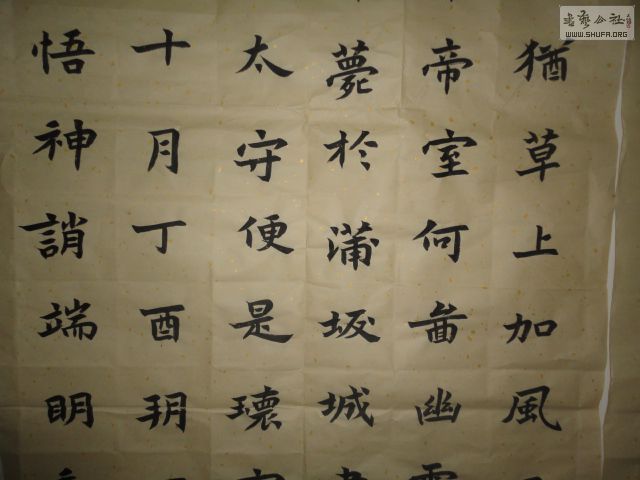 猶草上加風
帝室何啚幽
薨於蒲坂城
太守便是瓌
十月丁酉玥
悟神誚端明
書藝公社
WWW.SHUFA.ORG